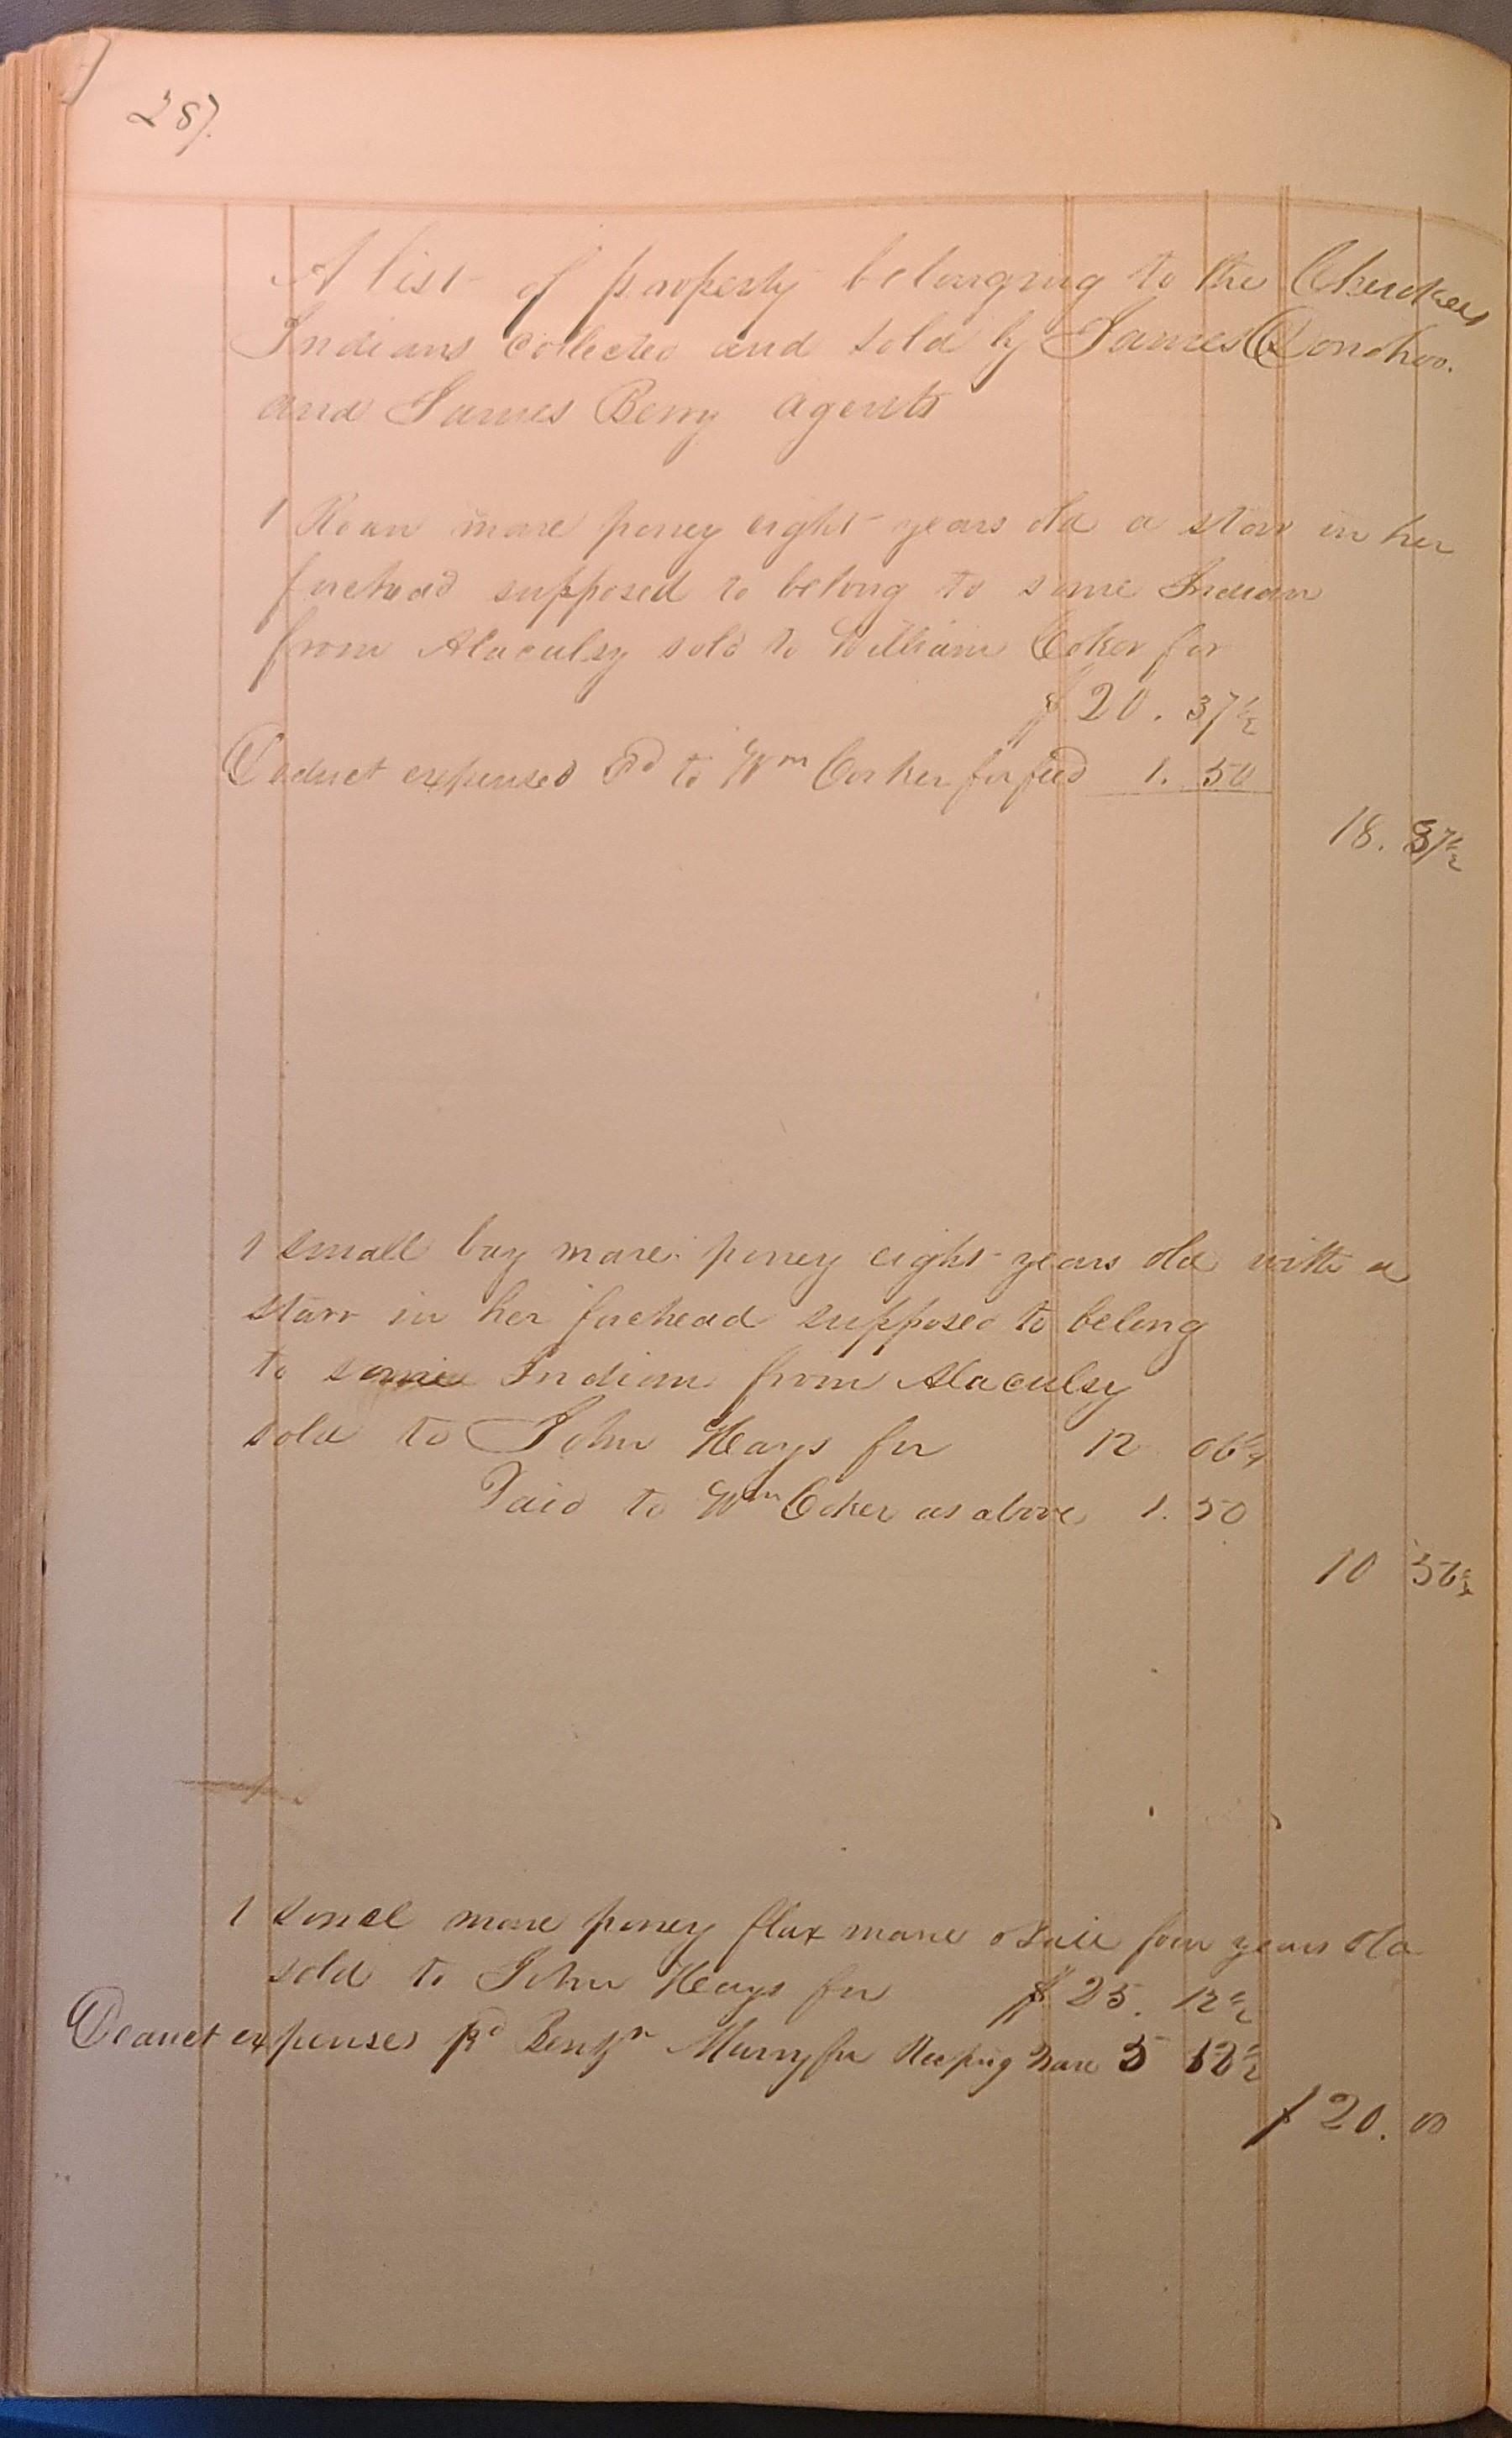 287.
A list of property belonging to the Cherokees
Indians collected and sold by James Donohoo.
and James Berry agents
1 Roan mare poney eight years old a starr in her
forehead supposed to belong to some Indian
from Alaculsy sold to William Coker for
$20. 37 1/2
Deduct expenses Pd to Wm Corker for feed 1. 50
18. 37 1/2
1 small bay mare poney eight years old with a
starr in her forehead supposed to belong
to some Indian from Alaculsy
sold to John Hays for 12 06 1/4
Paid to Wm Coker as above 1. 50
10 56 1/4
1 sorrel mare poney flax mane & tail four years old
sold to John Hays for $25. 12 1/2
Deduct expenses pd Benjn Murry for Keeping Mare 5 12 1/2
$20. 00